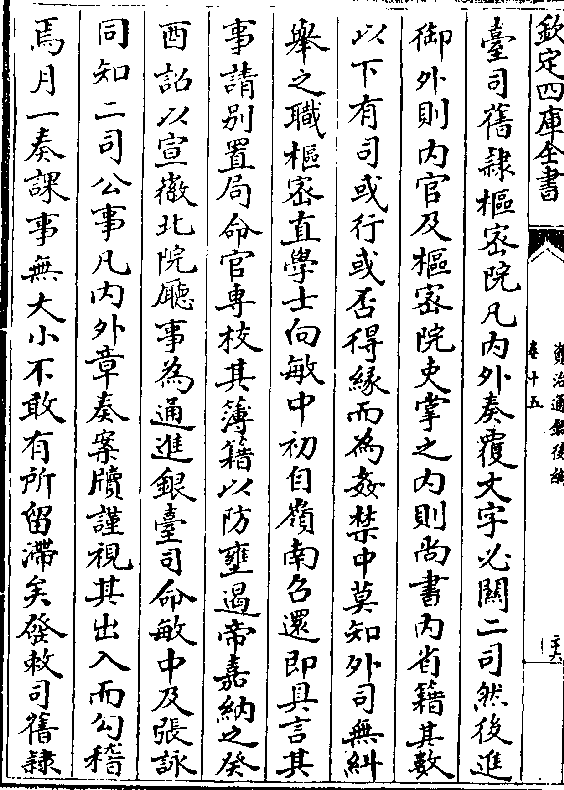 欽定四庫全書
資治通鑑後編
卷十五
臺司舊隸樞密院凡内外奏覆文字必關二司然後進
御外則内官及樞密院吏掌之内則尚書内省籍其數
以下有司或行或否得緣而為姦禁中莫知外司無糾
舉之職樞密直學士向敏中初自嶺南召還即具言其
事請别置局命官專校其簿籍以防壅遏帝嘉納之癸
酉詔以宣徽北院廳事為通進銀臺司命敏中及張詠
同知二司公事凡内外章奏案牘謹視其出入而勾稽
焉月一奏課事無大小不敢有所留滯矣發敕司舊隸